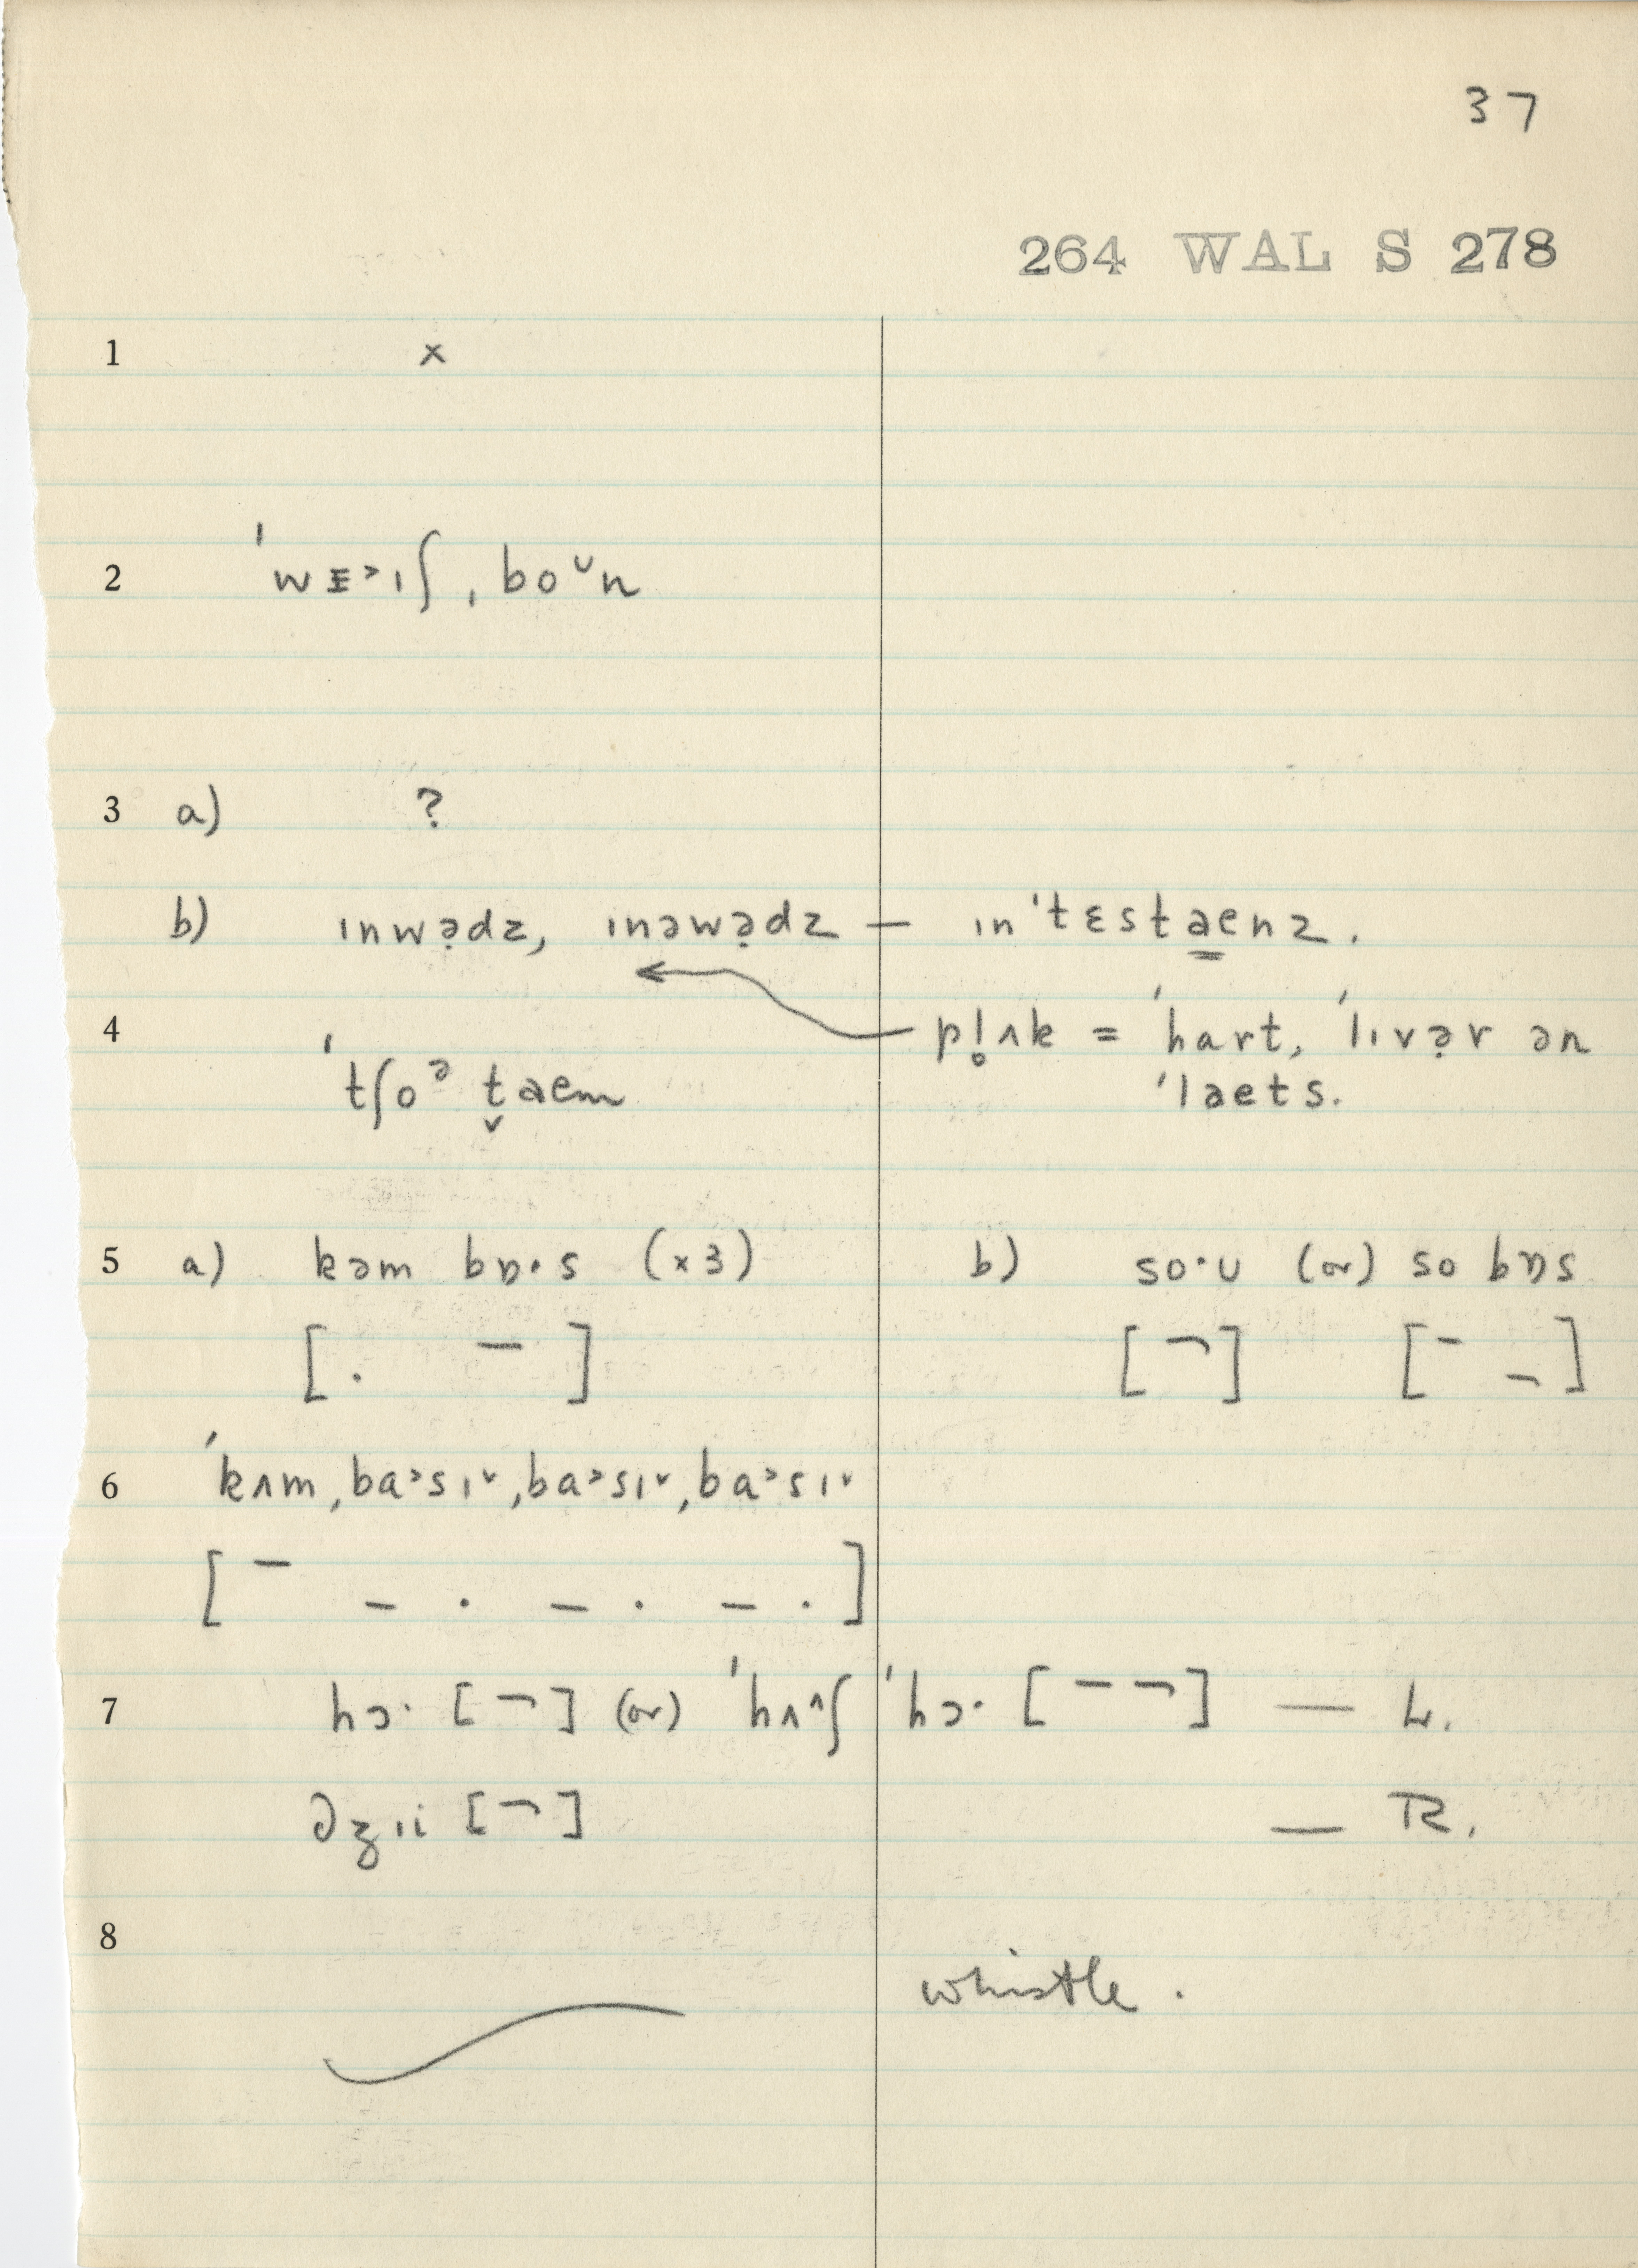 37
264 WAL S 278
1 x
2 ˈwᴇ˃ɪʃ ˌboᵕn
3 a) ?
b) ɪnwə̣dz, ɪnəwə̣dz — ɪnˈtɛstaenz.
4 ˈtʃoᵊ t̬aem
pl̥ʌk = ˈhart, ˈlɪvə̣r ən
ˈlaets.
5 a) kəm bɒ·s (x3) b) so·ʊ (or) so bɒs
[. ¯] [¬] [¯ ¬]
6 ˈkʌm ˌba˃sɪ˅ ˌba˃sɪ˅ ˌba˃sɪ˅
[¯ – . – . – .]
7 hɔ· [¬] (or) ˈhʌ^ʃ ˈhɔ· [¯ ¬] — L.
əʒɪi [¬] — R.
8 whistle.